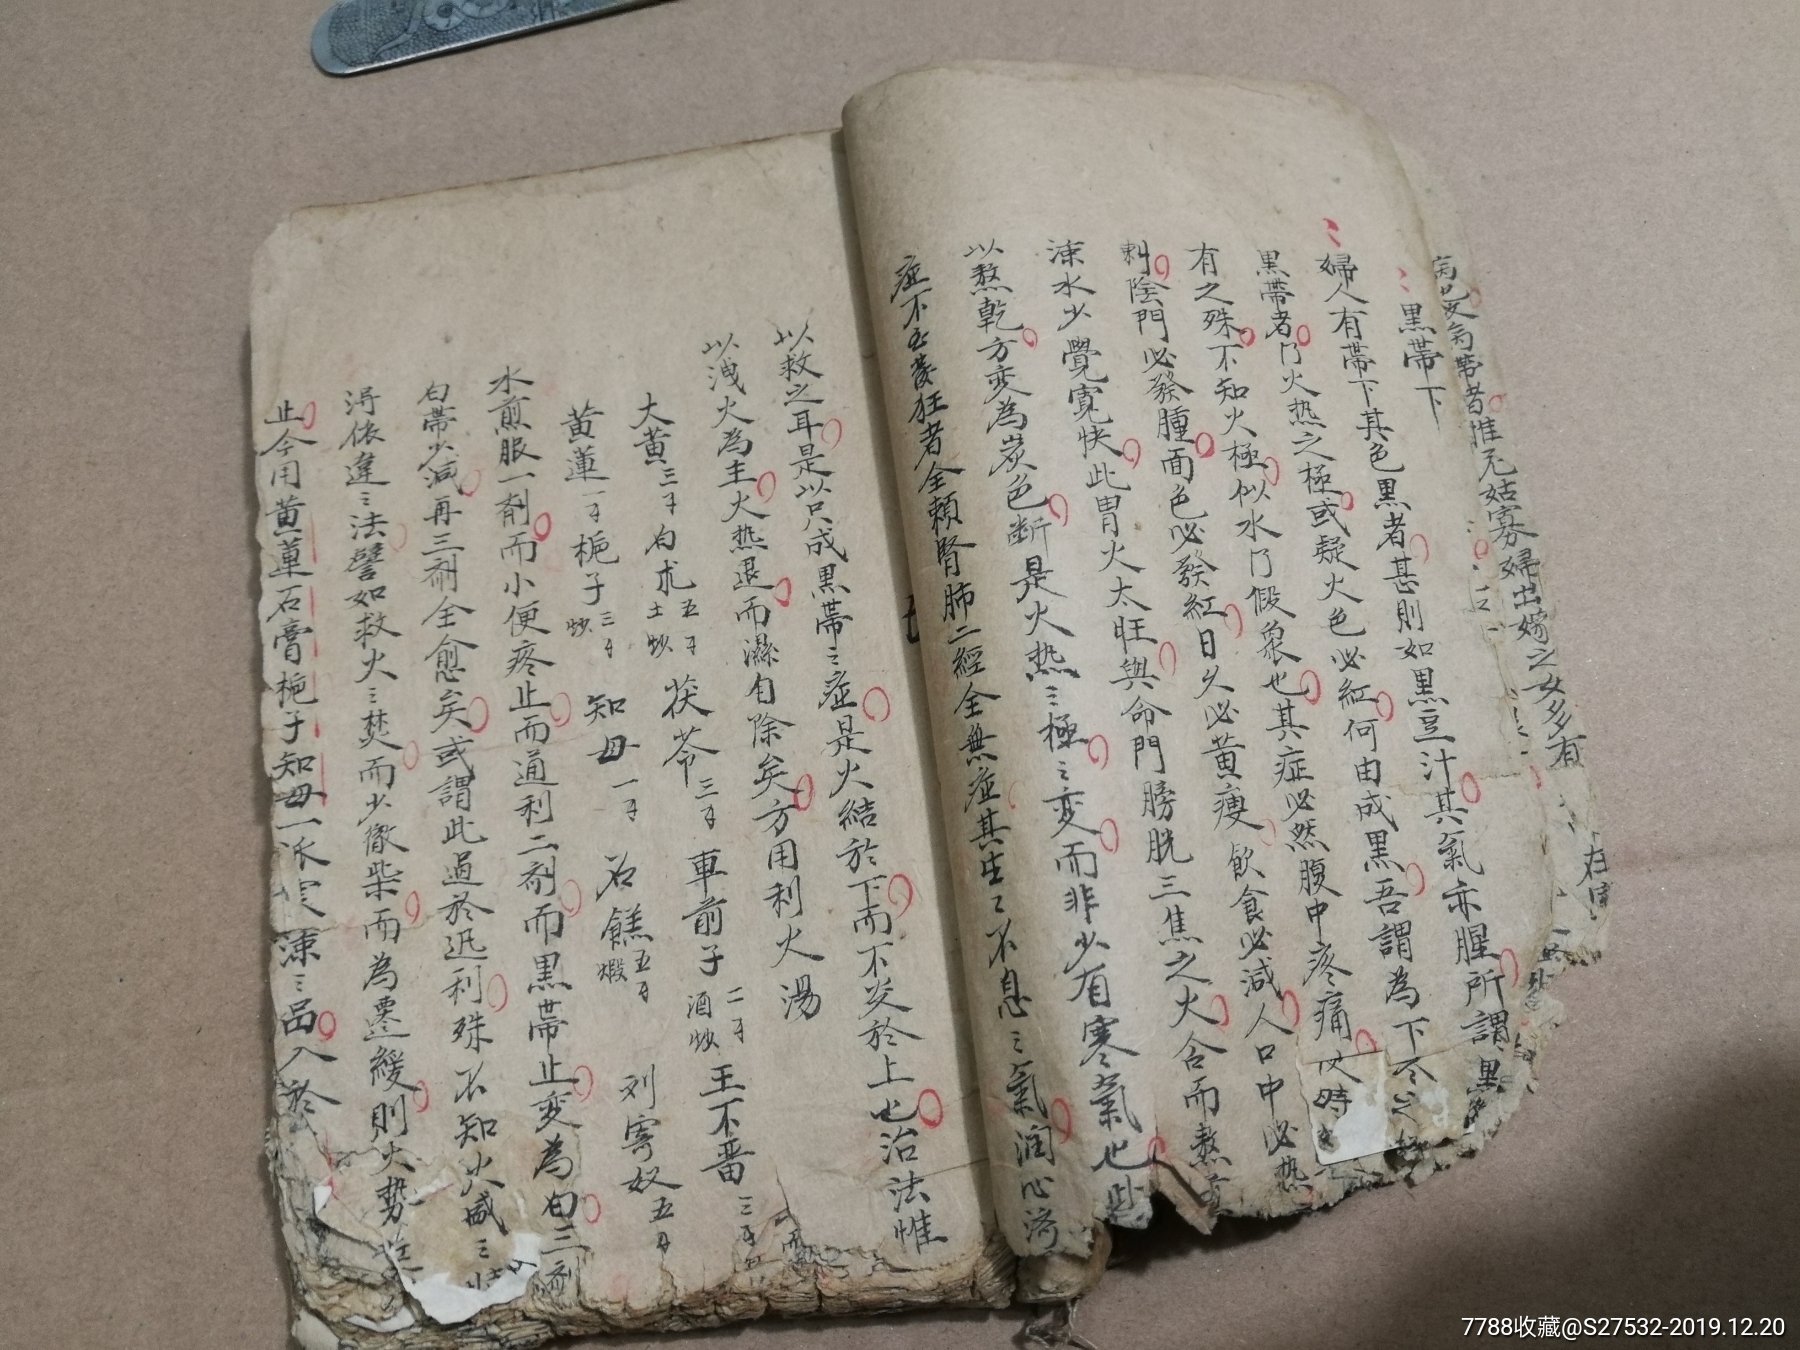 病也又有帶者惟尼姑寡婦出嫁之女多有
黑帶下
婦人有帶下其色黑者甚則如黑豆汁其氣亦腥所謂黑
黑帶者乃火热之極或疑火色必紅何由成黑吾謂為下不之
有之殊不知火極似水乃假象也其症必然腹中疼痛
刺陰門必發腫面色必發紅日久必黄瘦飲食必减人口中必热
凍水少覺寬快此胃火太旺與命門膀胱三焦之火合而熬
以熬乾方变為炭色断是火热之極之变而非少有寒氣也此
症不至發狂者全賴腎肺二經全無症其生生不息之氣潤心済
以救之耳是以只成黑帶之症是火結於下而不炎於上也治法惟
以洩火為主火热退而濕自除矣方用利火湯
大黄三 白朮五 土炒 茯苓三 車前子二 酒炒 王不畱三
黄蓮一 梔子三 炒 知母一 石羔五 煅 刘寄奴五
水煎服一剤而小便疼止而通利二剤而黑帶止变為白三剤
白帶少减再三剤全愈矣或謂此過於迅利殊不知火盛之
淂依違之法譬如救火之焚而少徹柴而為遷緩則火勢
止今用黄蓮石膏梔子知母一派寒凍之品入於
7788收藏@S27532-2019.12.20